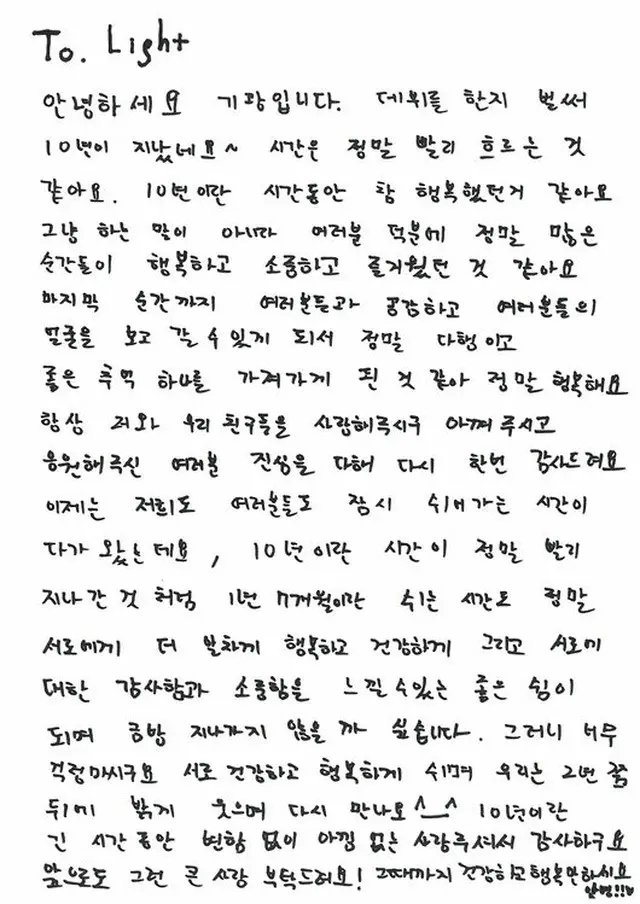 To. Light
안녕하세요 기광입니다. 데뷔를 한지 벌써
10년이 지났네요~ 시간은 정말 빨리 흐르는 것
같아요. 10년이란 시간동안 참 행복했던거 같아요
그냥 하는 말이 아니라 여러분 덕분에 정말 많은
순간들이 행복하고 소중하고 즐거웠던 것 같아요
마지막 순간까지 여러분들과 공감하고 여러분들의
얼굴을 보고 갈 수 있게 되서 정말 다행이고
좋은 추억 하나를 가져가게 된 것 같아 정말 행복해요
항상 저와 우리 친구들을 사랑해주시구 아껴주시고
응원해주신 여러분 진심을 다해 다시 한번 감사드려요
이제는 저희도 여러분들도 잠시 쉬어가는 시간이
다가 왔는데요, 10년이란 시간이 정말 빨리
지나간 것 처럼 1년 7개월이란 쉬는 시간도 정말
서로에게 더 발차게 행복하고 건강하게 그리고 서로에
대한 감사함과 소중함을 느낄 수 있는 좋은 쉼이
되며 금방 지나가지 않을 까 싶습니다. 그러니 너무
걱정마시구요 서로 건강하고 행복하게 쉬며 우리는 2년 꿈
뒤에 밝게 웃으며 다시 만나요^__^ 10년이란
긴 시간동안 변함 없이 아낌 없는 사랑주셔서 감사하구요
앞으로도 그런 큰 사랑 부탁드려요! 그때까지 건강하고 행복만하시요
안녕!!♥